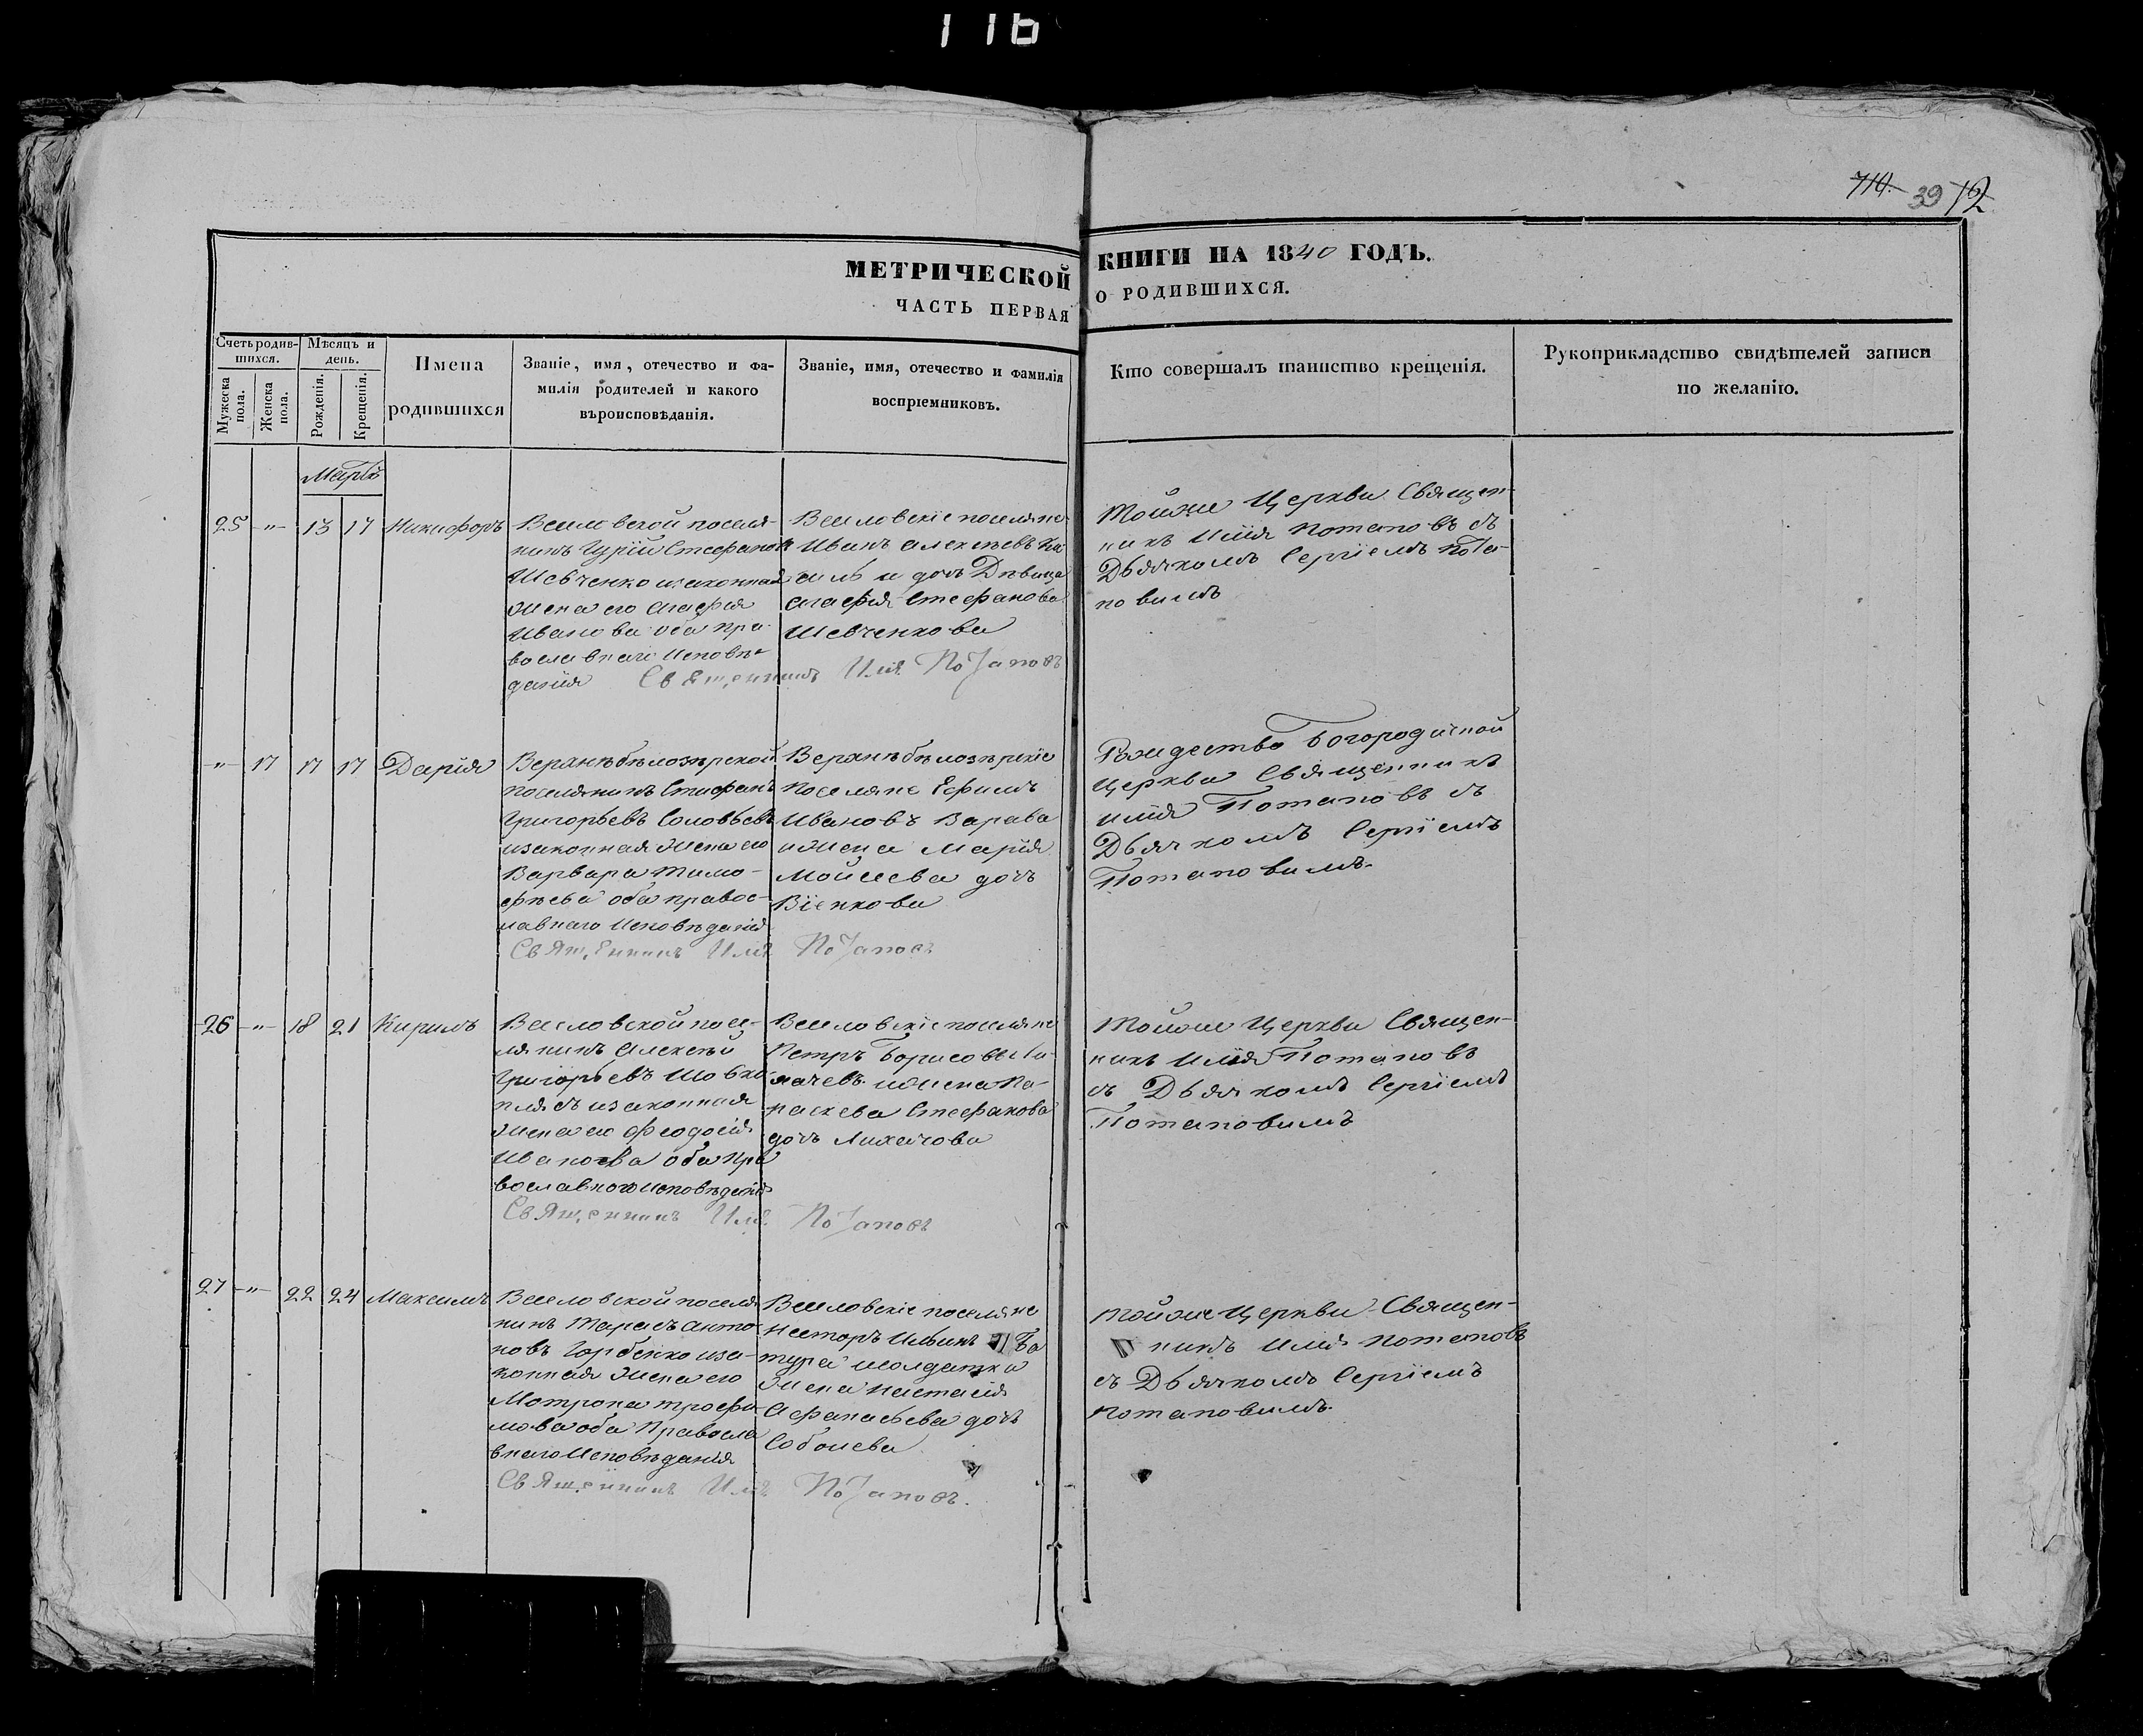 116
710. 39 12
МЕТРИЧЕСКОЙ КНИГИ НА 1840 ГОДЪ.
ЧАСТЬ ПЕРВАЯ О РОДИВШИХСЯ.
Счетъ родив-
шихся.
Мужеска
пола.
Женска
пола.
Мѣсяцъ и
день.
Рожденія.
Крещенія.
Имена
родившихся
Званіе, имя, отечество и фа-
милія родителей и какого
вѣроисповѣданія.
Званіе, имя, отечество и фамилія
воспріемниковъ.
Кто совершалъ таинство крещенія.
Рукоприкладство свидѣтелей записи
по желанію.
Мартъ
25 " 13 17 Никифоръ
Веселовской поселя-
нинъ Гурій Стефановъ
Шевченко изаконная
Жена его Агафія
Иванова оба пра-
вославнаго Исповѣ-
данія
Веселовскіе поселяне
Иванъ Алексѣевъ
и дочь Дѣвица
Агафія Стефанова
Шевченкова
Священникъ Илія Потаповъ
Тойже Церкви Священ-
никъ Илія Потаповъ съ
Дьячкомъ Сергіемъ Пота-
повимъ
" 17 17 17 Дарія
Верхнѣбѣлозѣрской
поселянинъ Стефанъ
Григорьевъ Соловьевъ
изаконная Жена его
Варвара Тимо-
фѣева оба правос-
лавнаго Исповѣданія
Верхнѣбѣлозѣрскіе
Поселяне Ефимъ
Ивановъ Варава
иЖена Марія
Мойсеева дочь
Віенкова
Священникъ Илія Потаповъ
Рождество Богородичной
Церкви Священникъ
Илія Потаповъ съ
Дьячкомъ Сергіемъ
Потаповимъ.
26 " 18 21 Кирилъ
Веселовской посе-
лянинъ Алексѣй
Григорьевъ
изаконная
Жена его Феодосія
Иванова оба Пра
вославного исповѣданія
Веселовскіе поселяне
Петръ Борисовъ
иЖена Па-
раскева Стефанова
дочь Лихачова
Священникъ Илія Потаповъ
Тойже Церкви Священ-
никъ Илія Потаповъ
съ Дьячкомъ Сергіемъ
Потаповимъ
27 " 22 24 Максимъ
Веселовской поселя
нинъ Тарасъ Анто-
новъ Горбенко иза-
конная Жена его
Мотрона Трофи-
мова оба Правосла
внаго Исповѣданія
Веселовскіе поселяне
Несторъ Ильинъ Ба
тура исолдатка
Жена Настасія
Афанасьева дочь
Соболева
Священникъ Илія Потаповъ.
Тойже Церкви Священ-
никъ Илія Потаповъ
съ Дьячкомъ Сергіемъ
Потаповимъ.